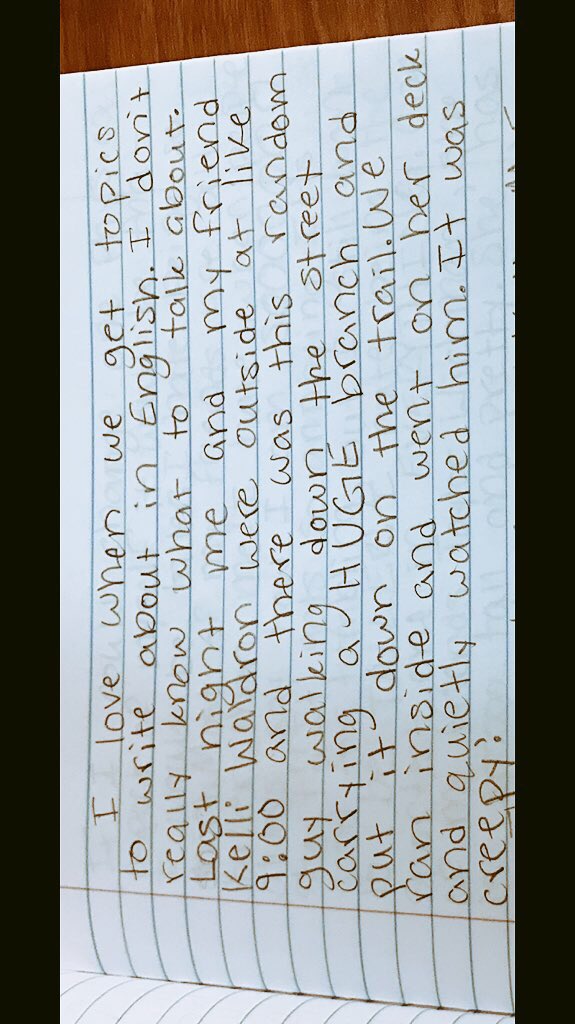 I love when we get topics
to write about in English. I don't
really know what to talk about.
Last night me and my friend
Kelli Waldron were outside at like
9:00 and there was this random
guy walking down the street
carrying a HUGE branch and
put it down on the trail. We
ran inside and went on her deck
and quietly watched him. It was
creepy!